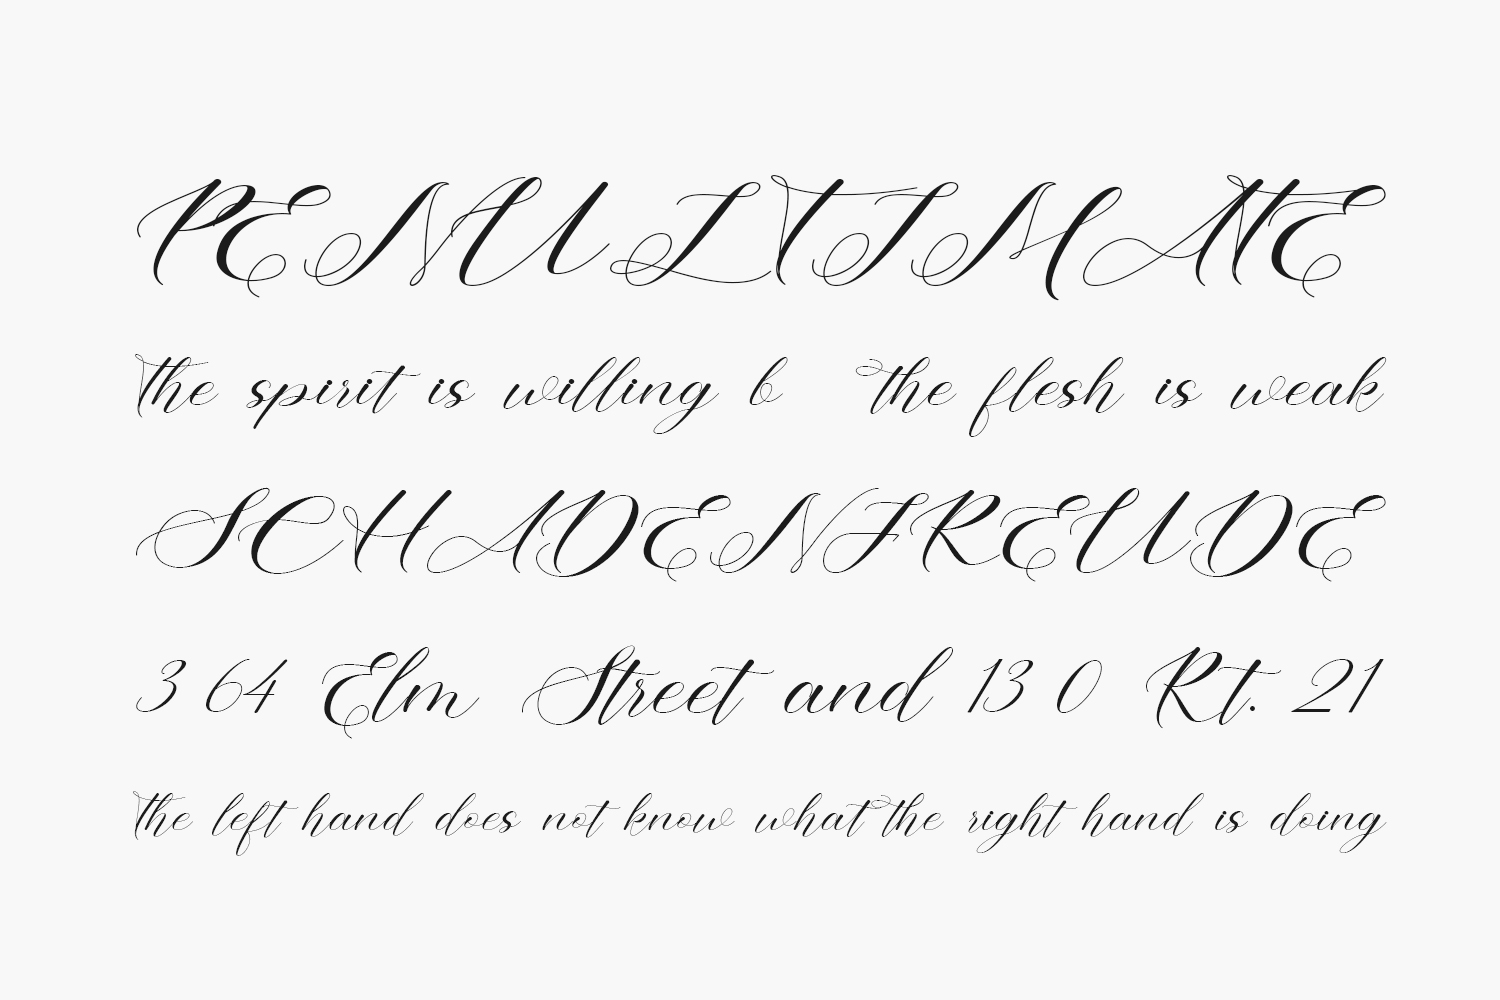 PENULTIMATE
The spirit is willing b the flesh is weak
SCHADENFREUDE
3 64 Elm Street and 13 0 Rt. 21
The left hand does not know what the right hand is doing